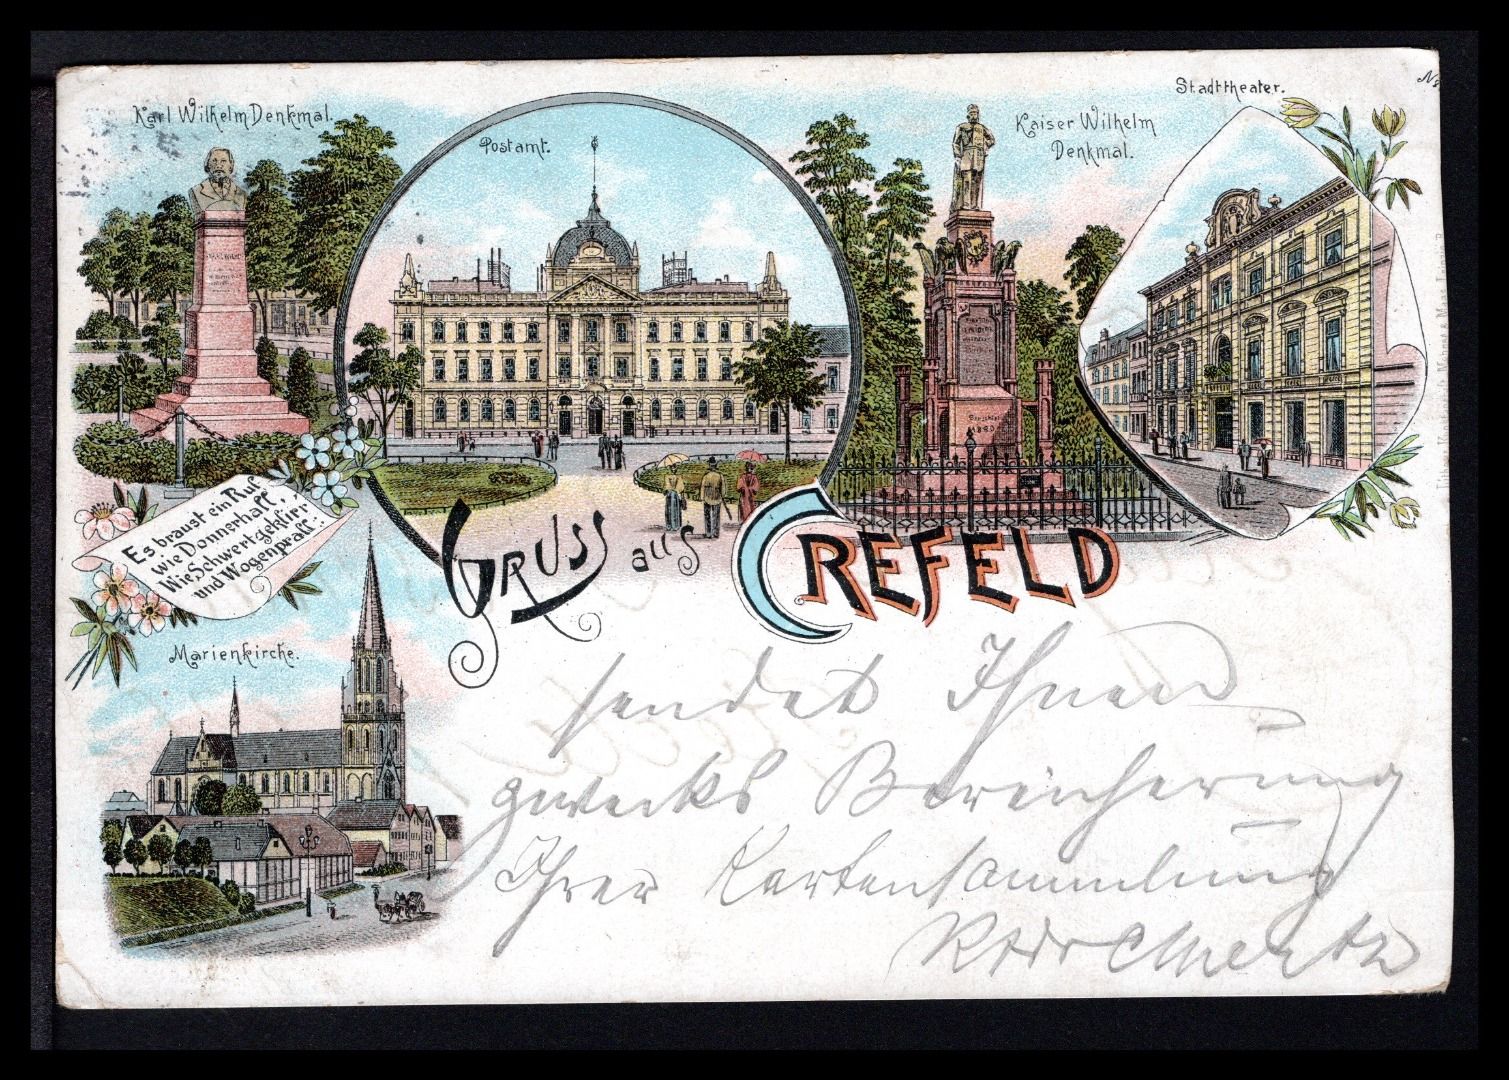 Karl Wilhelm Denkmal.
Postamt.
Kaiser Wilhelm
Denkmal.
Stadttheater.
Es braust ein Ruf
wie Donnerhall,
Wie Schwertgeklirr
und Wogenprall.
Gruss aus Crefeld
Marienkirche.
sendet Ihnen
zwecks Bereicherung
Ihrer Kartensammlung